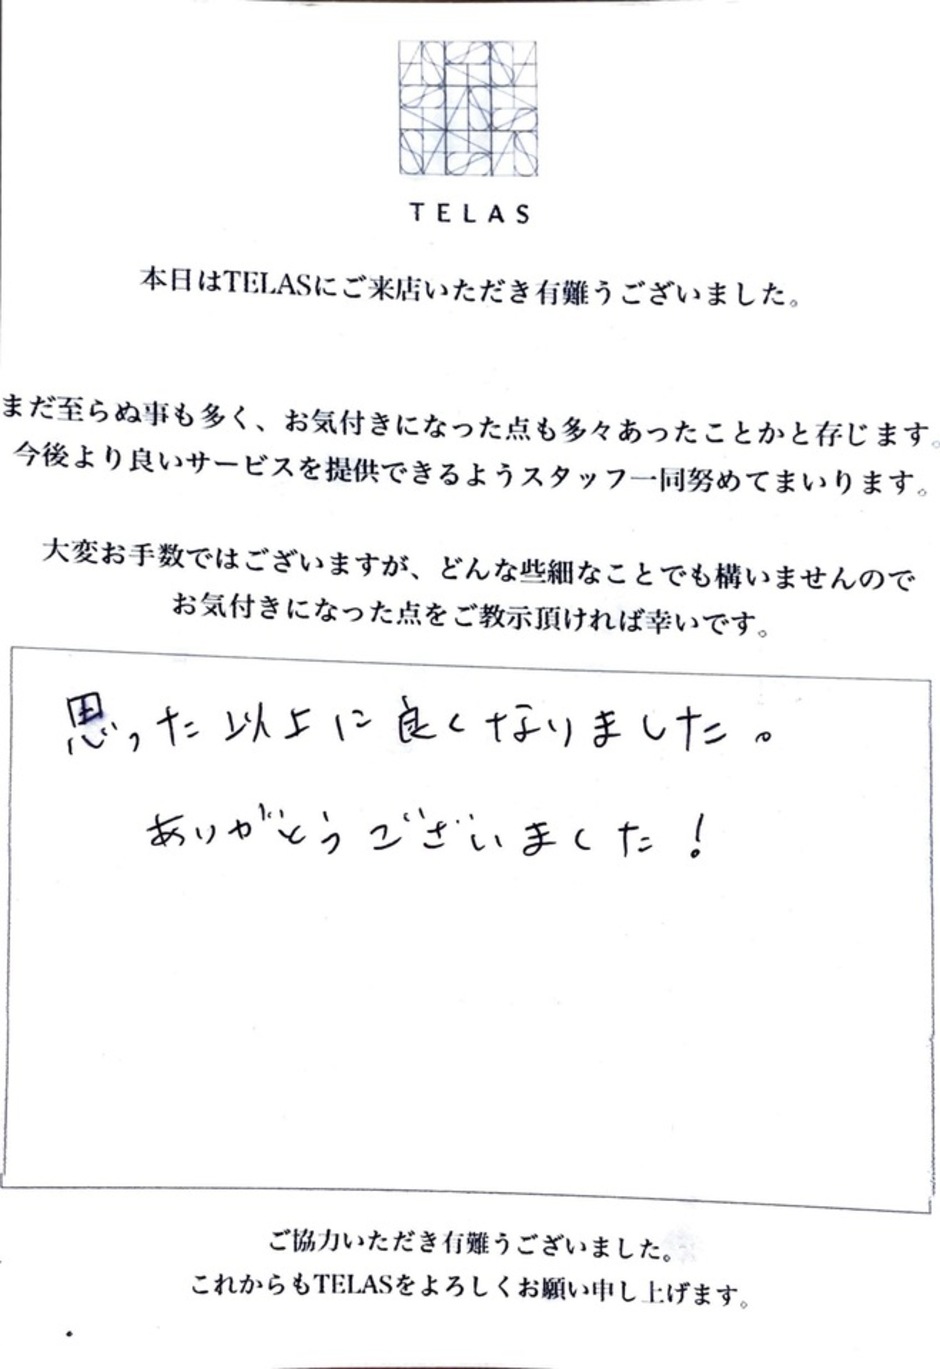 TELAS
本日はTELASにご来店いただき有難うございました。
まだ至らぬ事も多く、お気付きになった点も多々あったことかと存じます。
今後より良いサービスを提供できるようスタッフ一同努めてまいります。
大変お手数ではございますが、どんな些細なことでも構いませんので
お気付きになった点をご教示頂ければ幸いです。
思った以上に良くなりました。
ありがとうございました!
ご協力いただき有難うございました。
これからもTELASをよろしくお願い申し上げます。